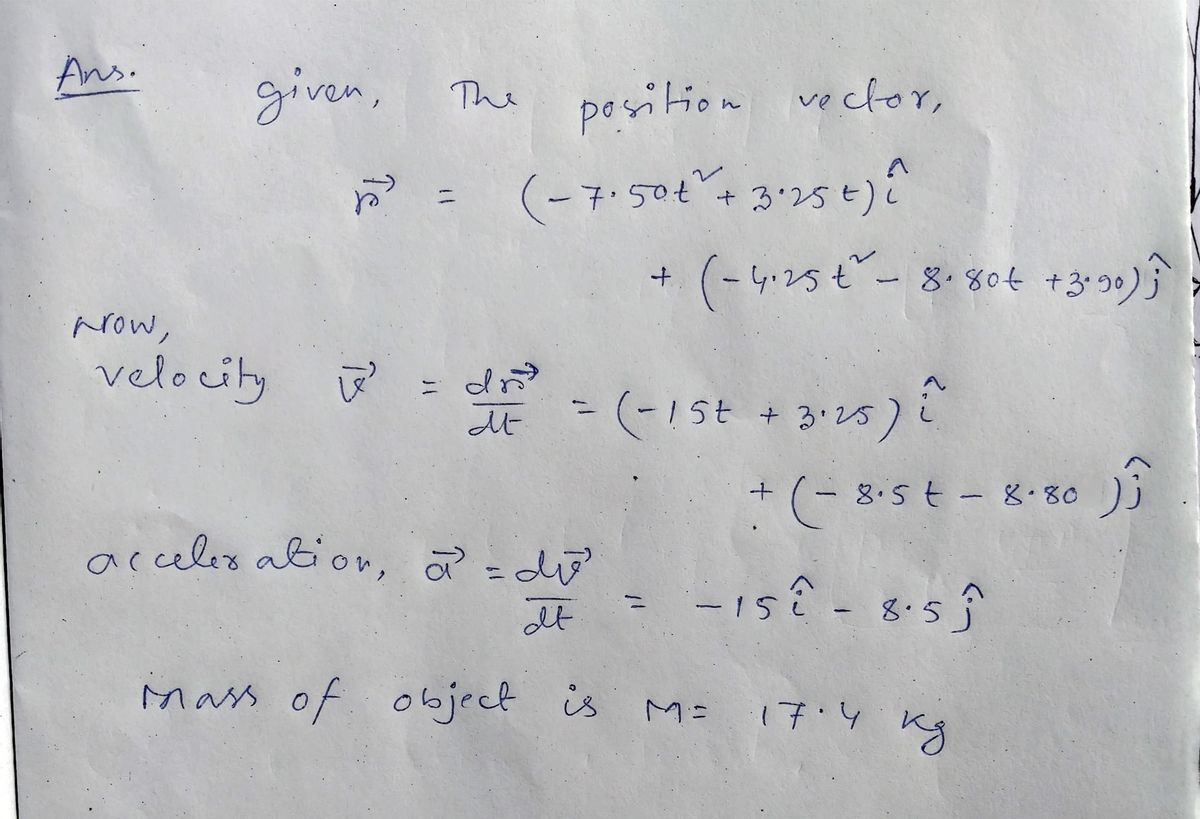 Ans.
given, The position vector,
r⃗ = (-7.50t² + 3.25t)î
+ (-4.25t² - 8.80t + 3.90)ĵ
Now,
velocity v⃗ = dr⃗/dt = (-15t + 3.25) î
+ (-8.5t - 8.80)ĵ
acceleration, a⃗ = dv⃗/dt = -15î - 8.5ĵ
Mass of object is M= 17.4 Kg